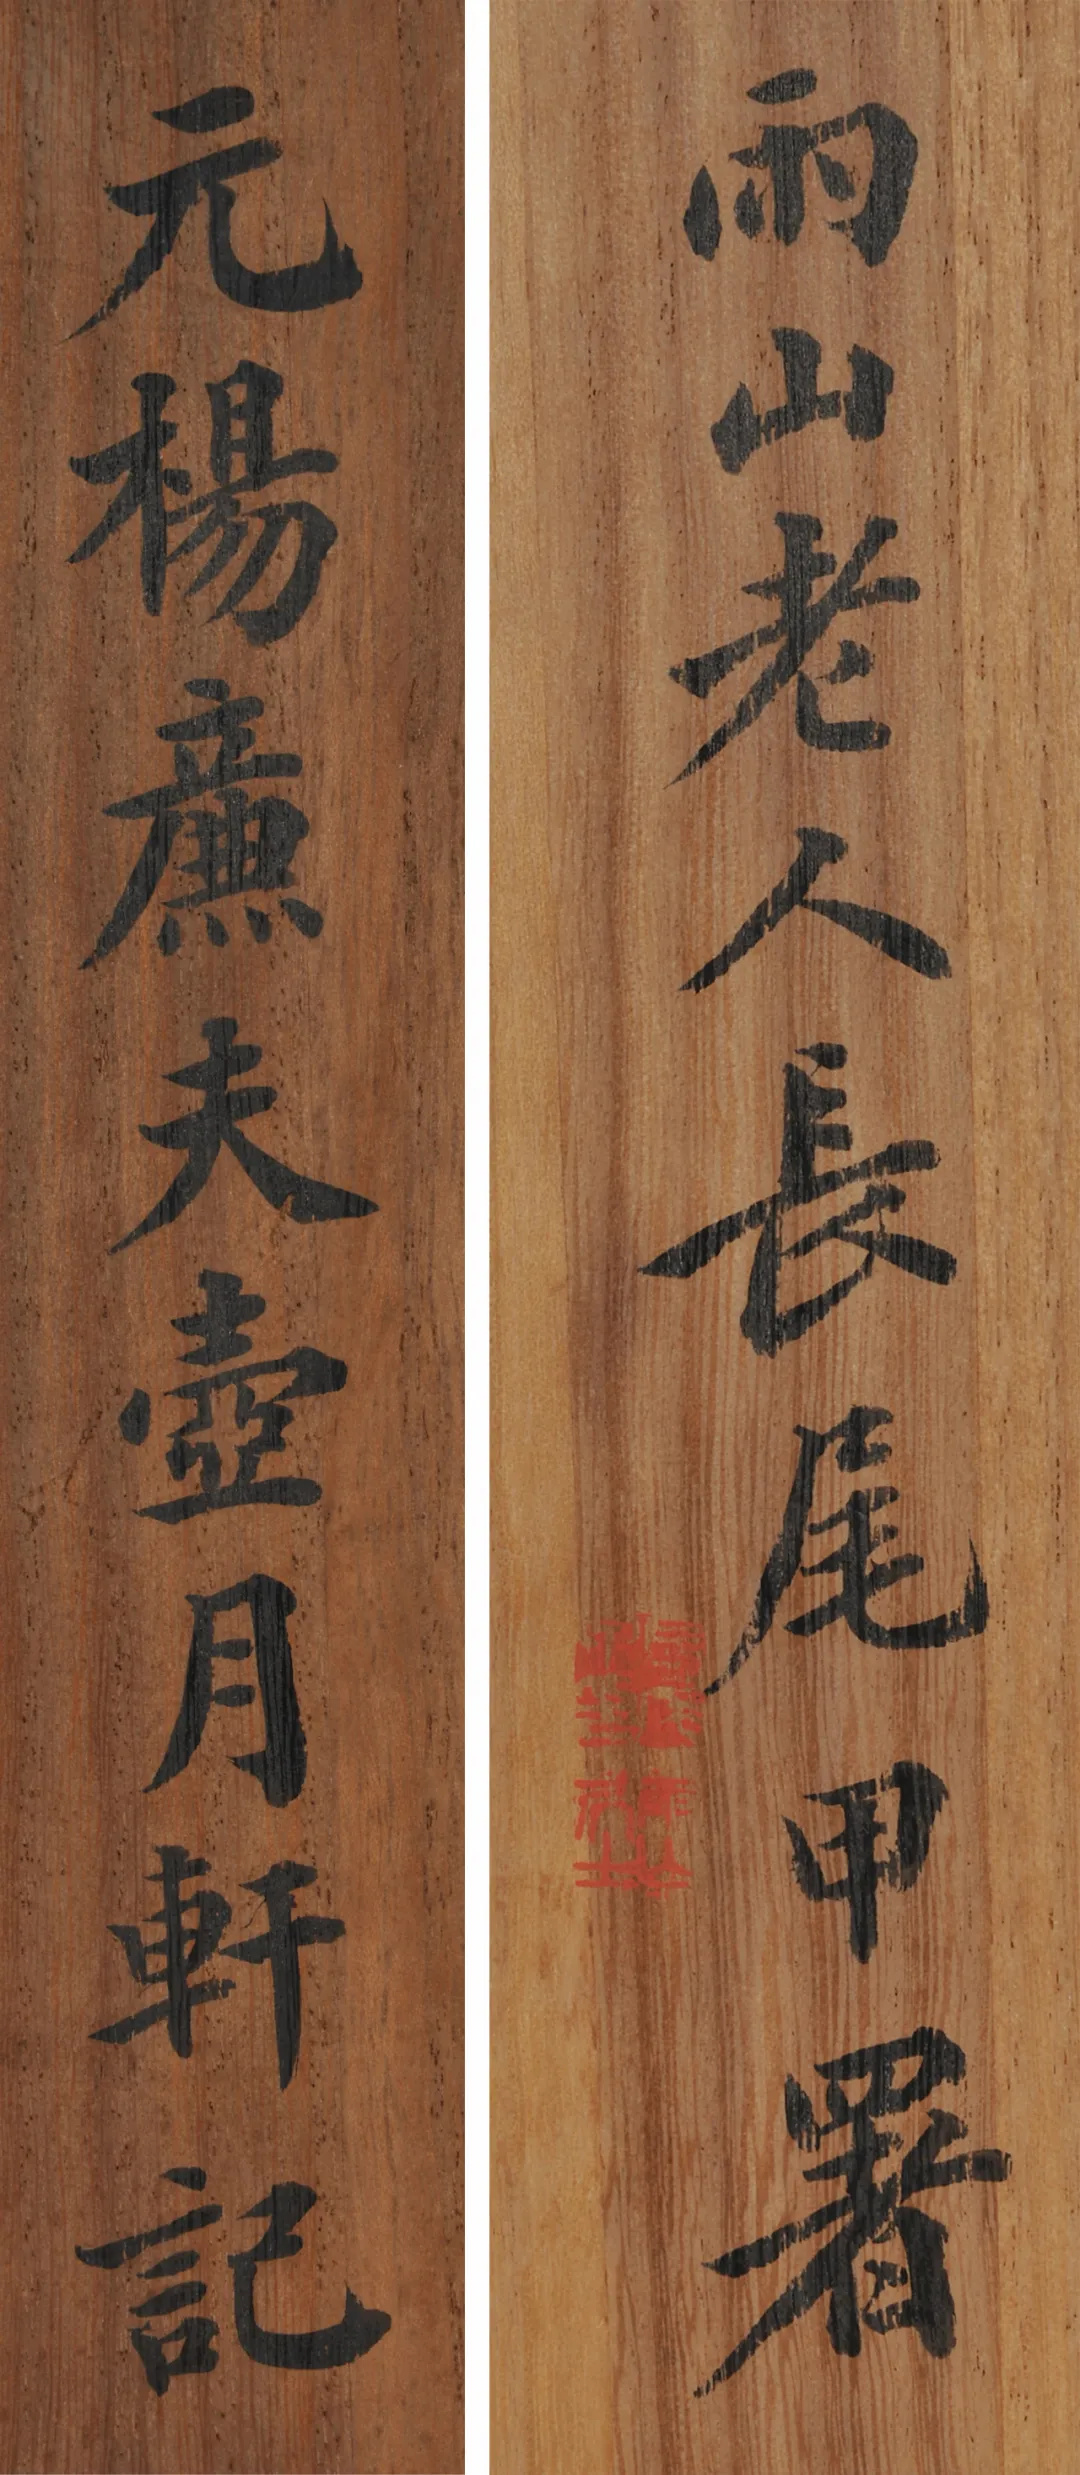 雨山老人長尾甲署
元楊廉夫壺月軒記